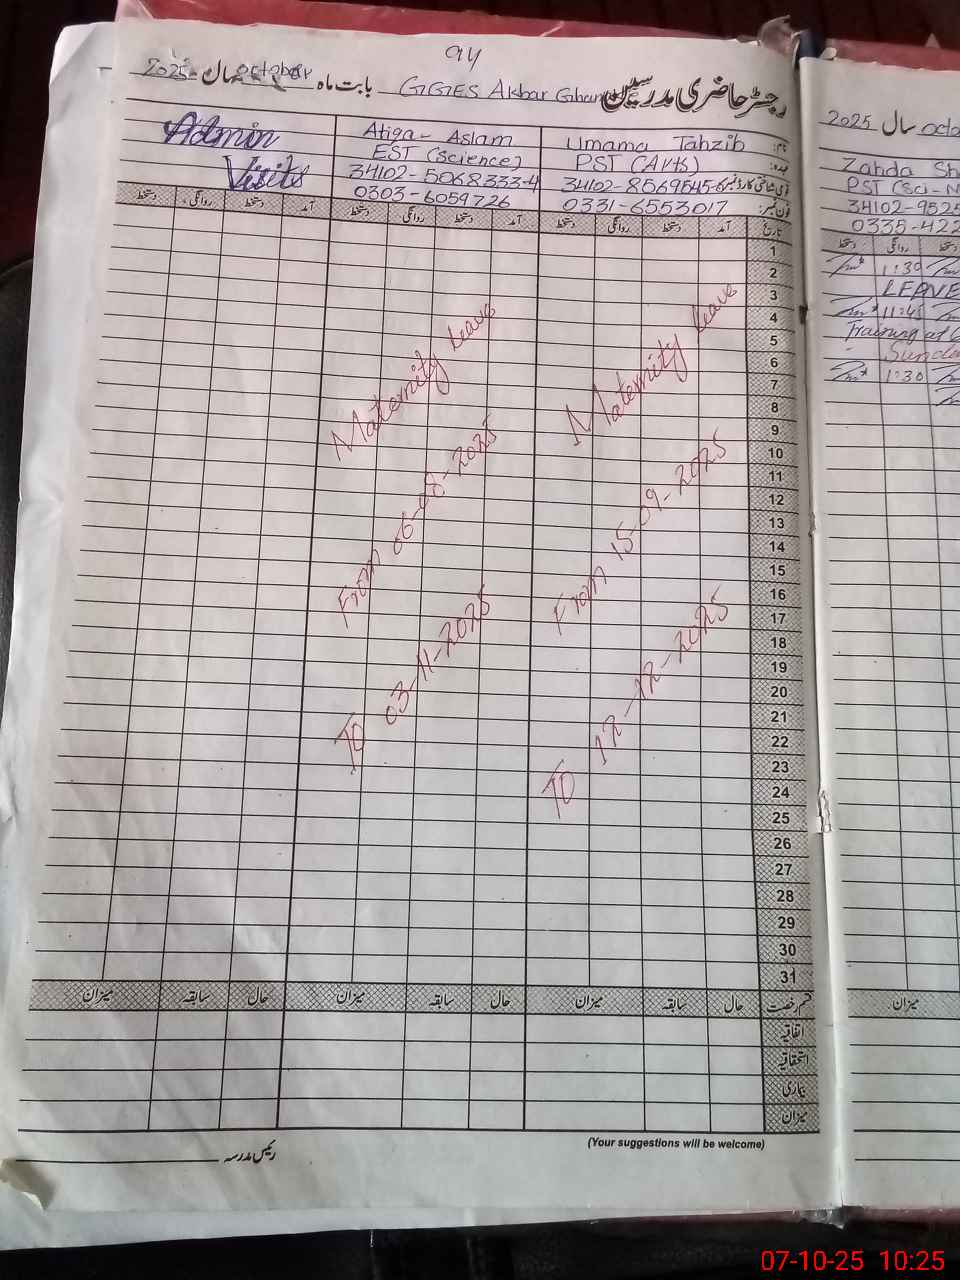 94
رجسٹر حاضری مدرسین GGES Akbar Ghanoke بابت ماہ october سال 2025
نام: Umama Tahzib
Atiqa - Aslam
Admin
Visits
عہدہ: PST (Arts)
EST (Science)
34102-8569545-6
34102-5068333-4
فون نمبر: 0331-6553017
0303-6059726
تاریخ آمد دستخط روانگی دستخط آمد دستخط روانگی دستخط آمد دستخط روانگی دستخط
1
2
3
4
5
6
7
8
9
10
11
12
13
14
15
16
17
18
19
20
21
22
23
24
25
26
27
28
29
30
31
Maternity Leave
From 15-09-2025
To 12-12-2025
Maternity Leave
From 06-08-2025
To 03-11-2025
قسم رخصت حال سابقہ میزان حال سابقہ میزان حال سابقہ میزان
اتفاقیہ
استحقاقیہ
بیماری
میزان
(Your suggestions will be welcome)
رئیس مدرسہ
2025 سال
Zahda
PST (Sci-
34102-9525
0335-422
دستخط روانگی دستخط
1:30
LEAVE
11:45
Training at
Sunda
1:30
میزان
07-10-25 10:25